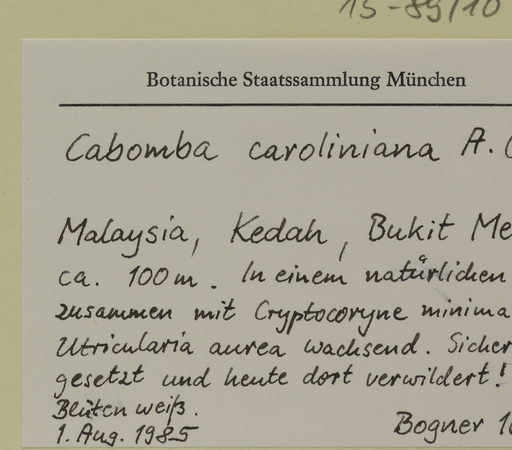 15-89/10
Botanische Staatssammlung München
Cabomba caroliniana A.
Malaysia, Kedah, Bukit Me
ca. 100 m. In einem natürlichen
zusammen mit Cryptocoryne minima
Utricularia aurea wachsend. Sicher
gesetzt und heute dort verwildert!
Blüten weiß.
1. Aug. 1985
Bogner